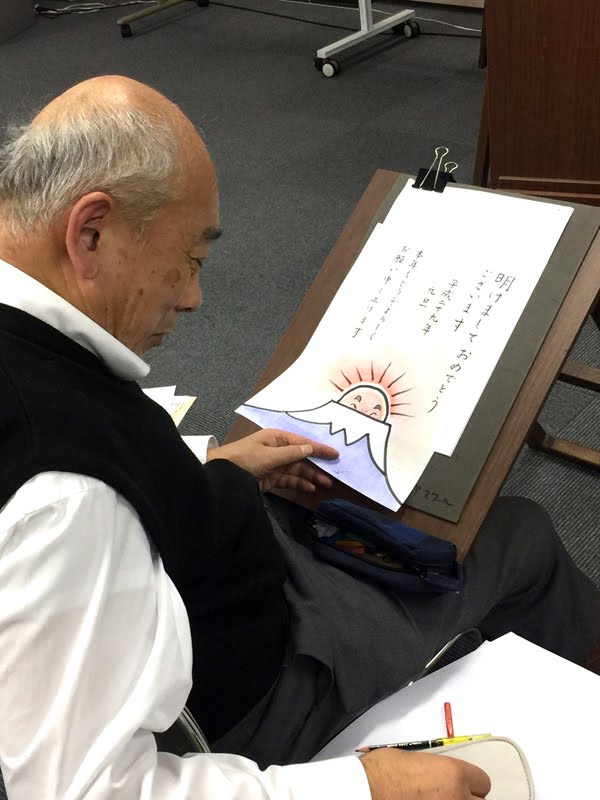 明けまして おめでとう
ございます
平成二十九年
元旦
本年もどうぞよろしく
お願い申し上げます
スクール